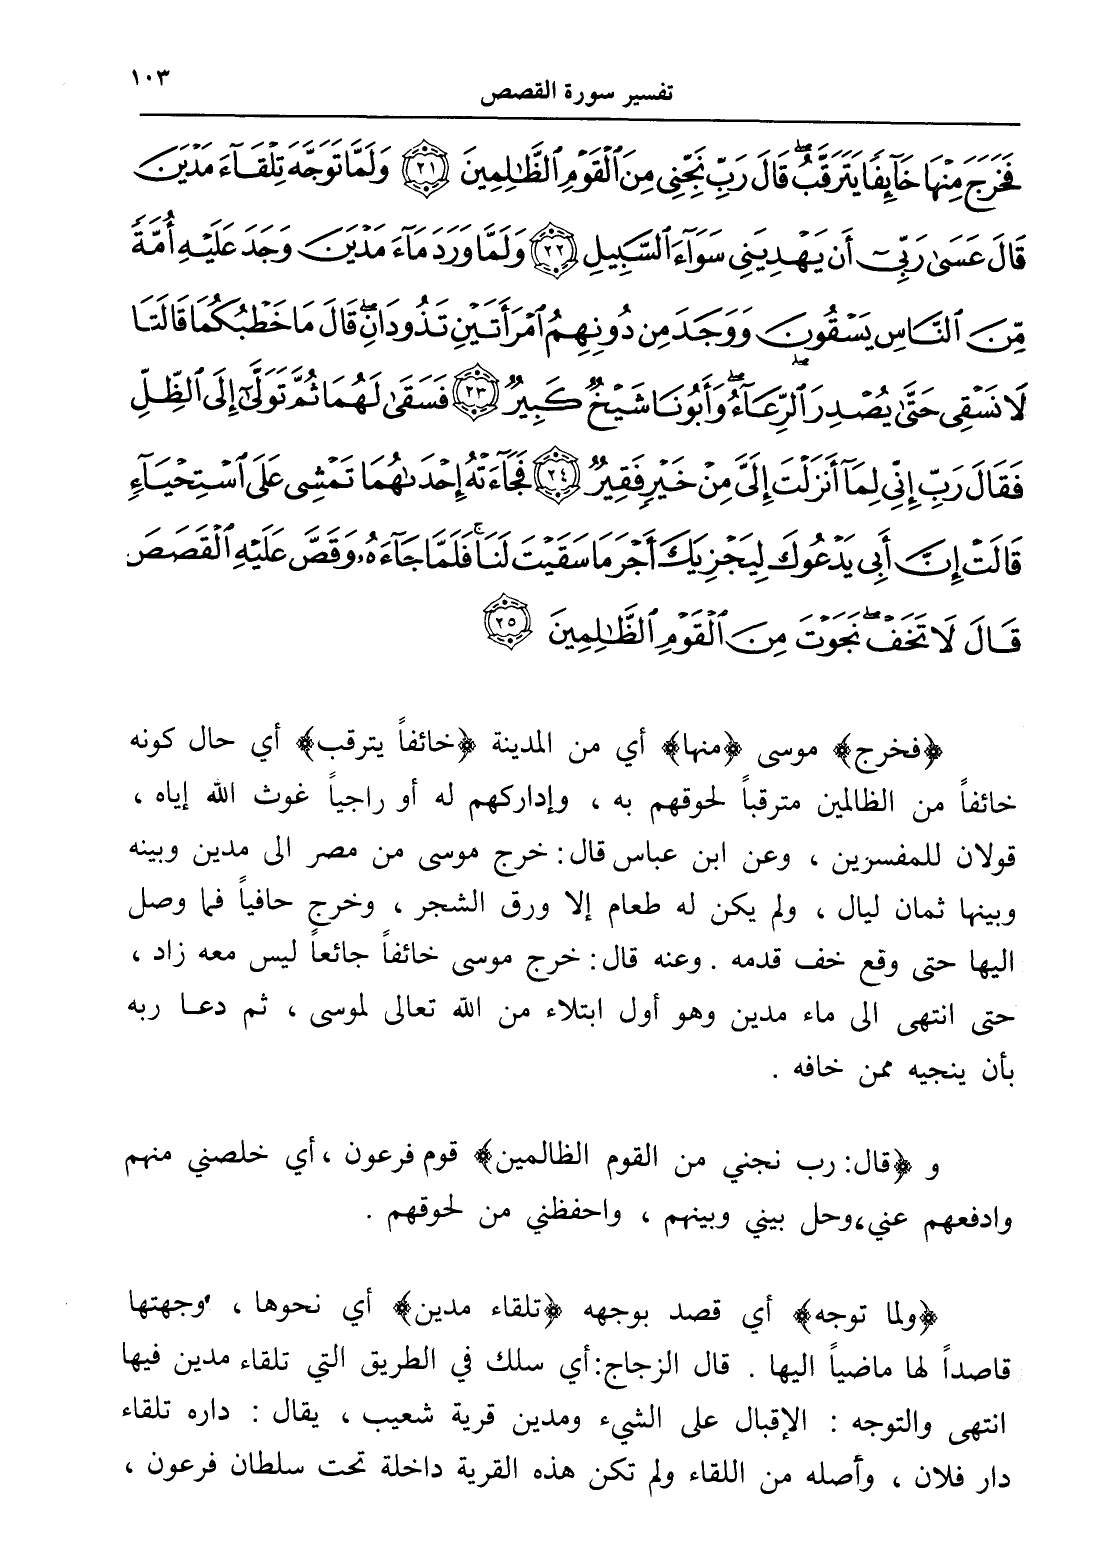 ١٠٣
تفسير سورة القصص
فَخَرَجَ مِنْهَا خَآئِفًا يَتَرَقَّبُۖ قَالَ رَبِّ نَجِّنِى مِنَ ٱلْقَوْمِ ٱلظَّٰلِمِينَ ٢١ وَلَمَّا تَوَجَّهَ تِلْقَآءَ مَدْيَنَ
قَالَ عَسَىٰ رَبِّىٓ أَن يَهْدِيَنِى سَوَآءَ ٱلسَّبِيلِ ٢٢ وَلَمَّا وَرَدَ مَآءَ مَدْيَنَ وَجَدَ عَلَيْهِ أُمَّةً
مِّنَ ٱلنَّاسِ يَسْقُونَ وَوَجَدَ مِن دُونِهِمُ ٱمْرَأَتَيْنِ تَذُودَانِۖ قَالَ مَا خَطْبُكُمَا قَالَتَا
لَا نَسْقِى حَتَّىٰ يُصْدِرَ ٱلرِّعَآءُۖ وَأَبُونَا شَيْخٌ كَبِيرٌ ٢٣ فَسَقَىٰ لَهُمَا ثُمَّ تَوَلَّىٰٓ إِلَى ٱلظِّلِّ
فَقَالَ رَبِّ إِنِّى لِمَآ أَنزَلْتَ إِلَىَّ مِنْ خَيْرٍ فَقِيرٌ ٢٤ فَجَآءَتْهُ إِحْدَىٰهُمَا تَمْشِى عَلَى ٱسْتِحْيَآءٍ
قَالَتْ إِنَّ أَبِى يَدْعُوكَ لِيَجْزِيَكَ أَجْرَ مَا سَقَيْتَ لَنَاۚ فَلَمَّا جَآءَهُۥ وَقَصَّ عَلَيْهِ ٱلْقَصَصَ
قَالَ لَا تَخَفْۖ نَجَوْتَ مِنَ ٱلْقَوْمِ ٱلظَّٰلِمِينَ ٢٥
﴿فخرج﴾ موسى ﴿منها﴾ أي من المدينة ﴿خائفاً يترقب﴾ أي حال كونه
خائفاً من الظالمين مترقباً لحوقهم به ، وإداركهم له أو راجياً غوث الله إياه ،
قولان للمفسرين ، وعن ابن عباس قال : خرج موسى من مصر الى مدين وبينه
وبينها ثمان ليال ، ولم يكن له طعام إلا ورق الشجر ، وخرج حافياً فما وصل
اليها حتى وقع خف قدمه . وعنه قال : خرج موسى خائفاً جائعاً ليس معه زاد ،
حتى انتهى الى ماء مدين وهو أول ابتلاء من الله تعالى لموسى ، ثم دعا ربه
بأن ينجيه ممن خافه .
و ﴿قال : رب نجني من القوم الظالمين﴾ قوم فرعون ، أي خلصني منهم
وادفعهم عني،وحل بيني وبينهم ، واحفظني من لحوقهم .
﴿ولما توجه﴾ أي قصد بوجهه ﴿تلقاء مدين﴾ أي نحوها ، وجهتها
قاصداً لها ماضياً اليها . قال الزجاج : أي سلك في الطريق التي تلقاء مدين فيها
انتهى والتوجه : الإقبال على الشيء ومدين قرية شعيب ، يقال : داره تلقاء
دار فلان ، وأصله من اللقاء ولم تكن هذه القرية داخلة تحت سلطان فرعون ،